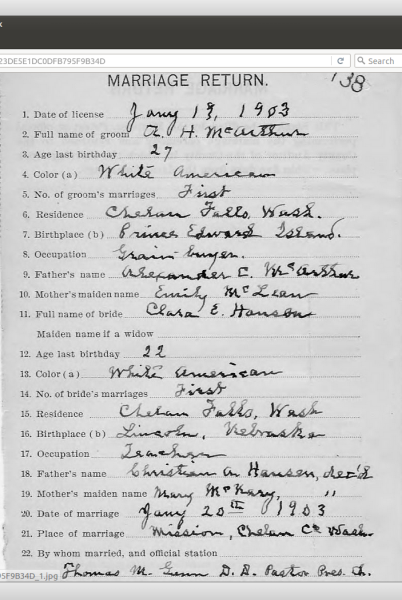 23DE5E1DC0DFB795F9B34D
Search
MARRIAGE RETURN.
138
1. Date of license Jany 19, 1903
2. Full name of groom A. H. McArthur
3. Age last birthday 27
4. Color (a) White American
5. No. of groom's marriages First
6. Residence Chelan Falls, Wash.
7. Birthplace (b) Prince Edward Island.
8. Occupation Grain buyer.
9. Father's name Alexander C. McArthur
10. Mother's maiden name Emily McLean
11. Full name of bride Clara E. Hansen
Maiden name if a widow
12. Age last birthday 22
13. Color (a) White American
14. No. of bride's marriages First
15. Residence Chelan Falls, Wash
16. Birthplace (b) Lincoln, Nebraska
17. Occupation Teacher
18. Father's name Christian A. Hansen, dec'd
19. Mother's maiden name Mary , "
20. Date of marriage Jany 20th 1903
21. Place of marriage Mission, Chelan Co Wash.
22. By whom married, and official station
Thomas M. Gunn D. D. Pastor Pres. Ch.
95F9B34D_1.jpg